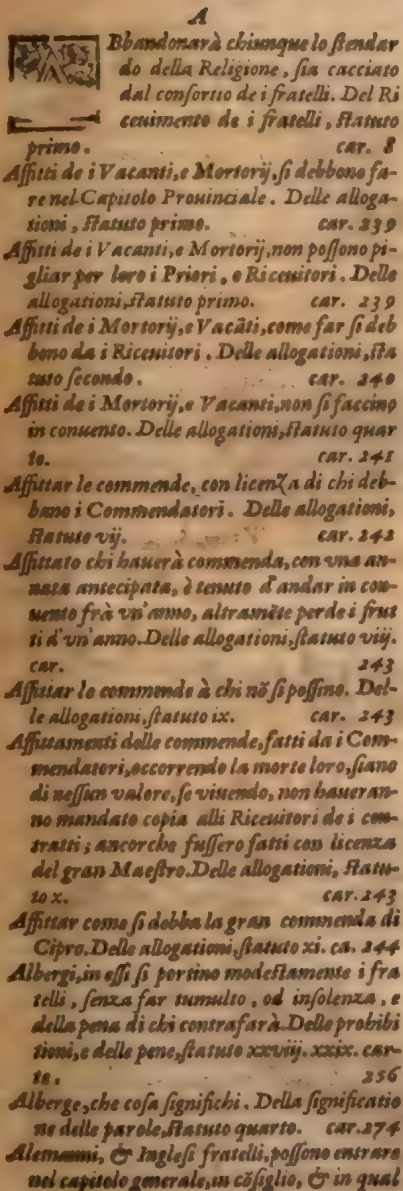 A
Bbandonarà chiunque lo stendar
do della Religione, sia cacciato
dal consortio de i fratelli. Del Ri
ceuimento de i fratelli, statuto
primo. car. 8
Affitti de i Vacanti, e Mortorij, si debbono fa-
re nel Capitolo Prouinciale. Delle alloga-
tioni, statuto primo. car. 239
Affitti de i Vacanti, e Mortorij, non possono pi-
gliar per loro i Priori, o Riceuitori. Delle
allogationi, statuto primo. car. 239
Affitti de i Mortorij, e Vacāti, come far si deb
bono da i Riceuitori. Delle allogationi, sta
tuto secondo. car. 240
Affitti de i Mortorij, e Vacanti, non si faccino
in conuento. Delle allogationi, statuto quar
to. car. 241
Affittar le commende, con licenza di chi deb-
bano i Commendatori. Delle allogationi,
statuto vij. car. 242
Affittato chi hauerà commenda, con vna an-
nata antecipata, è tenuto d'andar in con-
uento frà vn'anno, altramēte perde i frut
ti d'vn'anno. Delle allogationi, statuto viij.
car. 243
Affittar le commende à chi nō si possino. Del-
le allogationi, statuto ix. car. 243
Affittamenti delle commende, fatti da i Com-
mendatori, occorrendo la morte loro, siano
di nessun valore, se viuendo, non haueran-
no mandato copia alli Riceuitori de i con-
tratti; ancorche fussero fatti con licenza
del gran Maestro. Delle allogationi, statu-
to x. car. 243
Affittar come si debba la gran commenda di
Cipro. Delle allogationi, statuto xi. ca. 244
Albergi, in essi si portino modestamente i fra
telli, senza far tumulto, od insolenza, e
della pena di chi contrafarà. Delle prohibi
tioni, e delle pene, statuto xxviij. xxix. car-
te. 256
Alberge, che cosa significhi. Della significatio
ne delle parole, statuto quarto. car. 274
Alemanni, & Inglesi fratelli, possono entrare
nel capitolo generale, in cōsiglio, & in qual